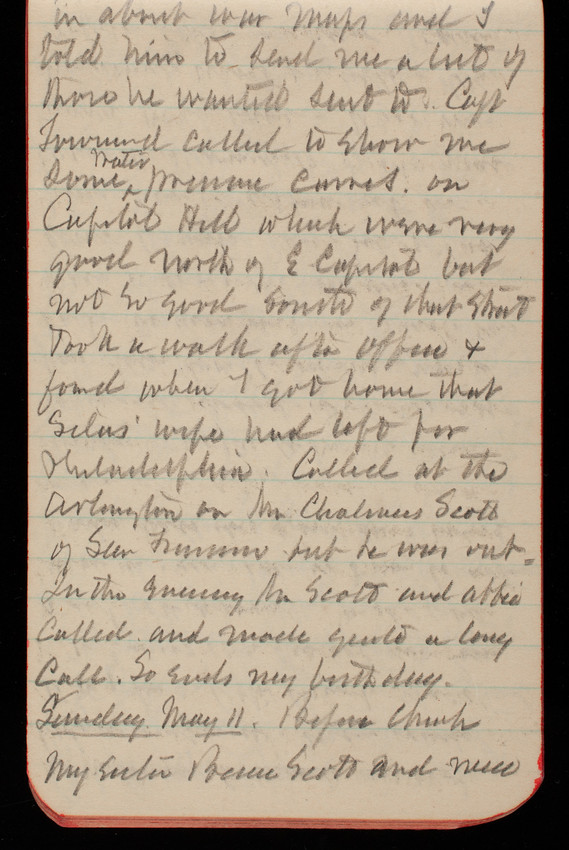 in about war maps and I
told him to send me a list of
those he wanted sent to. Capt
Townsend called to show me
some Water pressure curves. on
Capitol Hill which were very
good north of E Capitol but
not so good South of that Street
Took a walk after office &
found when I got home that
Silas' wife had left for
Philadelphia. Called at the
Arlington on Mr Chalmers Scott
of San Francisco but he was out.
In the evening Mr Scott and Abbie
called and made quite a long
Call. So ends my birthday.
Sunday May 11. Before Church
My sister Scott and